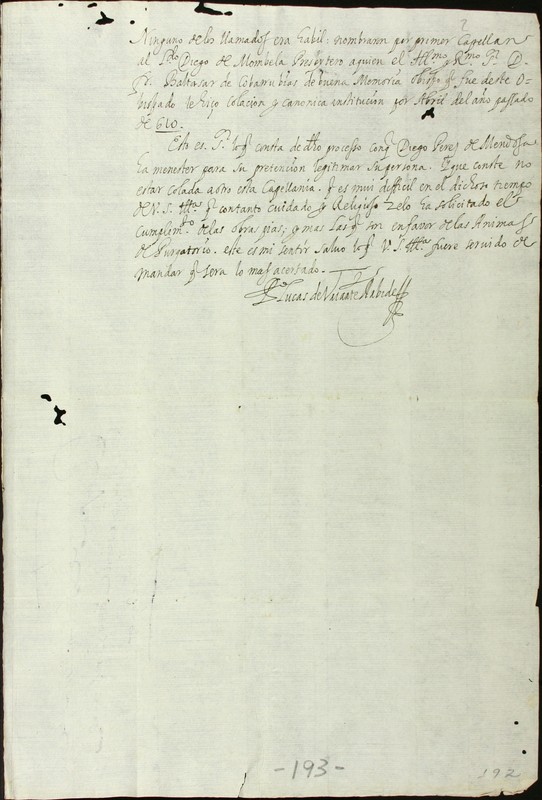 Ninguno de los llamados era habil: nombraron por primer Capellan
al Pdo Diego de Mombela Presbytero aquien el Illmo y Rmo Sr D.
fr. Baltasar de Cobarrubias de buena Memoria obispo q fue deste O-
bispado le hiço colacion y canonica institucion por Abril del año passado
de 610.
Esto es Sr lo q consta de dho processo con q Diego Perez de Mendoça
ha menester para su pretencion legitimar su persona. que conste no
estar colada a otro esta Capellania. q es mui difficil en el dichoso tiempo
de V. S. Illma q con tanto cuidado y Religioso zelo ha solicitado el
Cumplimto de las obras pias; y mas las q son en favor de las Animas
de Purgatorio. este es mi sentir salvo lo q V. S. Illma fuere servido de
mandar q sera lo mas acertado.
Lucas de
-193-
192